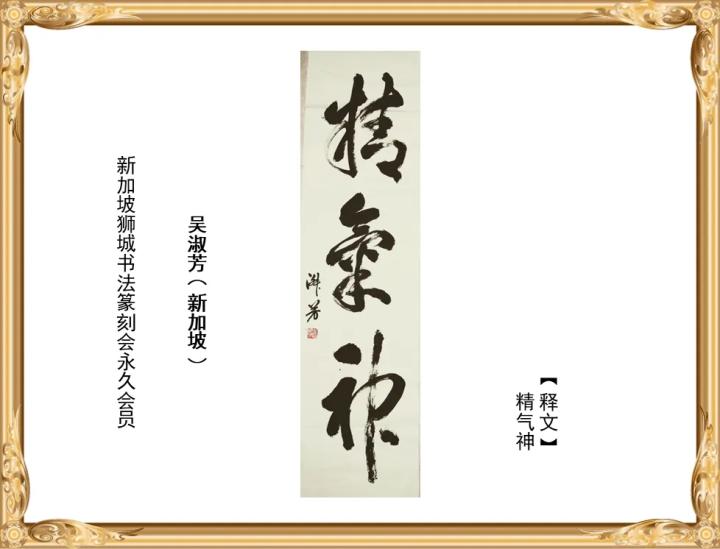 【释文】
精气神
精氣神
淑芳
吴淑芳（新加坡）
新加坡狮城书法篆刻会永久会员